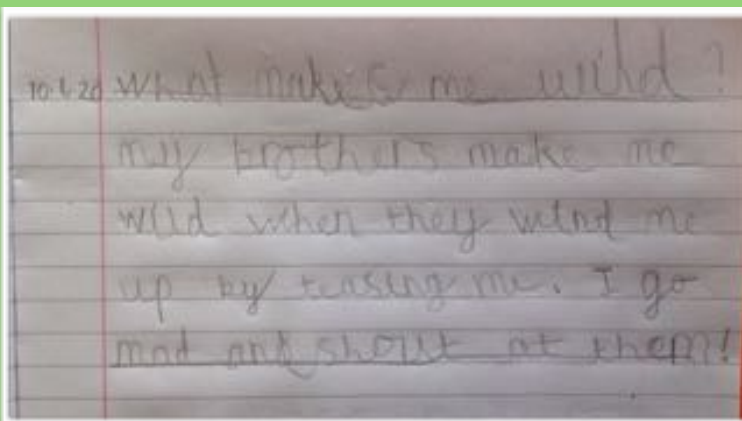 10.1.20 What makes me wild?
my brothers make me
wild when they wind me
up by teasing me. I go
mad and shout at them!